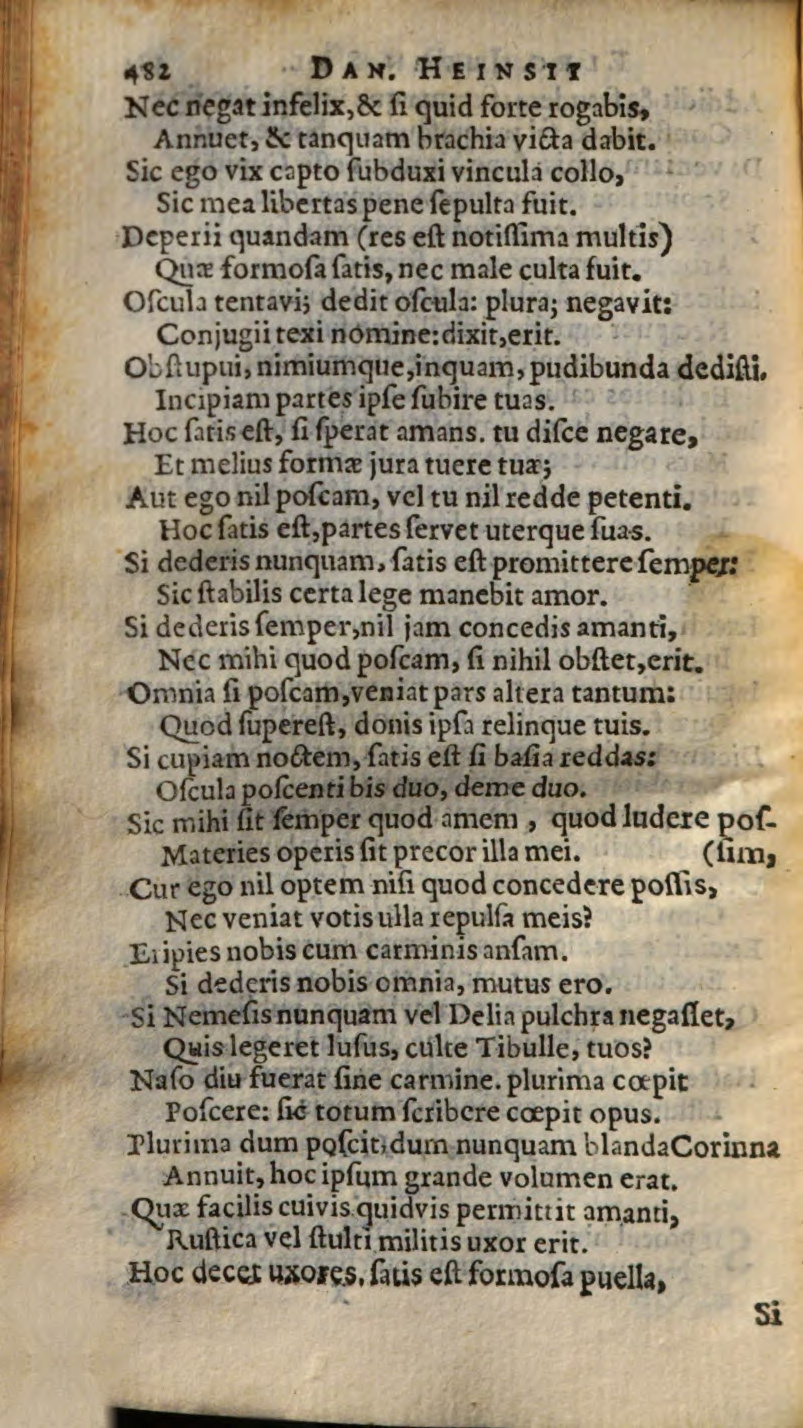 482 DAN. HEINSII
Nec negat infelix, & ſi quid forte rogabis,
Annuet, & tanquam brachia victa dabit.
Sic ego vix capto ſubduxi vincula collo,
Sic mea libertas pene ſepulta fuit.
Deperii quandam (res eſt notiſſima multis)
Quæ formoſa ſatis, nec male culta fuit.
Oſcula tentavi; dedit oſcula: plura; negavit:
Conjugii texi nomine: dixit, erit.
Obſtupui, nimiumque, inquam, pudibunda dediſti.
Incipiam partes ipſe ſubire tuas.
Hoc ſatis eſt, ſi ſperat amans. tu diſce negare,
Et melius formæ jura tuere tuæ;
Aut ego nil poſcam, vel tu nil redde petenti.
Hoc ſatis eſt, partes ſervet uterque ſuas.
Si dederis nunquam, ſatis eſt promittere ſemper:
Sic ſtabilis certa lege manebit amor.
Si dederis ſemper, nil jam concedis amanti,
Nec mihi quod poſcam, ſi nihil obſtet, erit.
Omnia ſi poſcam, veniat pars altera tantum:
Quod ſupereſt, donis ipſa relinque tuis.
Si cupiam noctem, ſatis eſt ſi baſia reddas:
Oſcula poſcenti bis duo, deme duo.
Sic mihi ſit ſemper quod amem , quod ludere poſ-
Materies operis ſit precor illa mei. (ſim,
Cur ego nil optem niſi quod concedere poſſis,
Nec veniat votis ulla repulſa meis?
Eripies nobis cum carminis anſam.
Si dederis nobis omnia, mutus ero.
Si Nemeſis nunquam vel Delia pulchra negaſſet,
Quis legeret luſus, culte Tibulle, tuos?
Naſo diu fuerat ſine carmine. plurima cœpit
Poſcere: ſic totum ſcribere cœpit opus.
Plurima dum poſcit, dum nunquam blanda Corinna
Annuit, hoc ipſum grande volumen erat.
Quæ facilis cuivis quidvis permittit amanti,
Ruſtica vel ſtulti militis uxor erit.
Hoc decet uxores, ſatis eſt formoſa puella,
Si